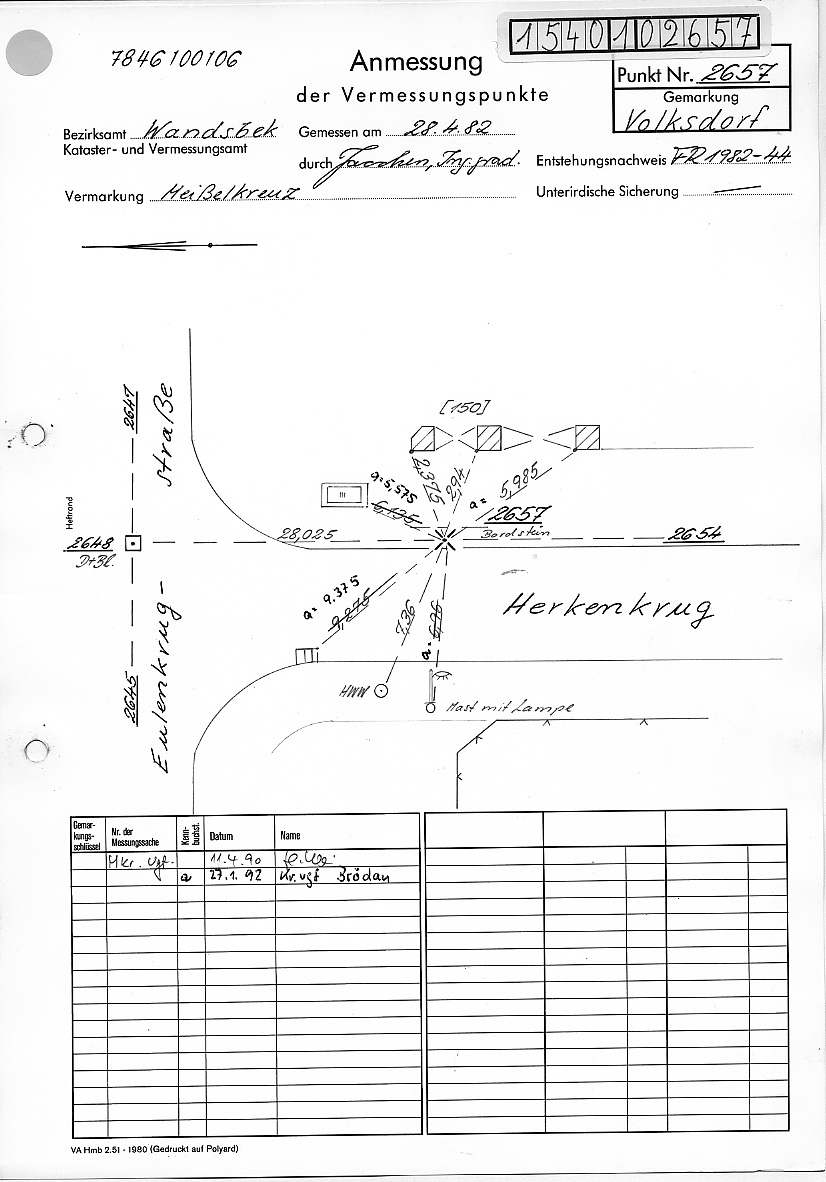 1540102657
7846100106
Anmessung
der Vermessungspunkte
Punkt Nr. 2657
Gemarkung
Volksdorf
Bezirksamt Wandsbek
Kataster- und Vermessungsamt
Gemessen am 28.4.82
durch
Entstehungsnachweis FR 1982-44
Vermarkung Meißelkreuz
Unterirdische Sicherung —
2647
straße
[150]
a=5,575
6,135
2,395
2,94
a= 5,985
2657
Bordstein
2654
Heftrand
2648
D+Bl.
28,025
a= 9.375
9,276
7,36
a=
Herkenkrug
2645
Eulenkrug-
HWW
Mast mit Lampe
Gemar-
kungs-
schlüssel
Nr. der
Messungssache
Kenn-
buchst.
Datum
Name
Mkr. vgf. 11.4.90
a 27.1.92 Kr.vgf Brödan
VA Hmb 2.51 - 1980 (Gedruckt auf Polyard)